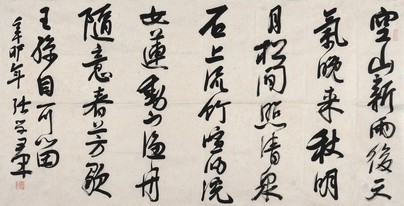 空山新雨後天
氣晚来秋明
月松间照清泉
石上流竹喧归浣
女蓮動下渔舟
随意春芳歇
王孫自可留
辛卯年